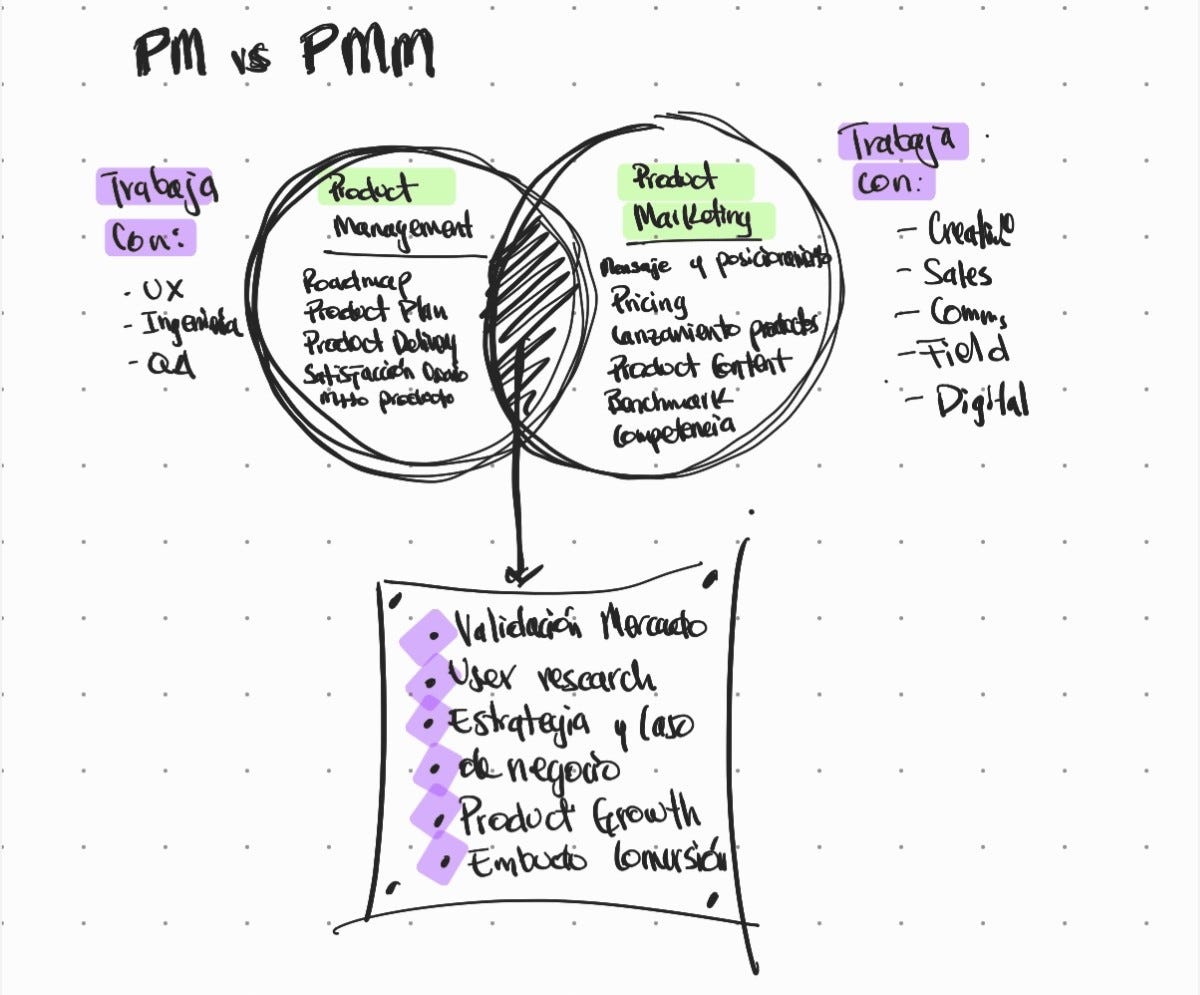 PM vs PMM
Trabaja
Con:
- UX
- Ingeniería
- QA
Product
Management
Roadmap
Product Plan
Product Delivery
Satisfacción
producto
Product
Marketing
Mensaje y posicionamiento
Pricing
Lanzamiento productos
Product Content
Benchmark
Competencia
Trabaja
con:
- Creative
- Sales
- Comms
- Field
- Digital
• Validación Mercado
• User research
• Estrategia y Caso
• de negocio
• Product Growth
• Embudo Conversión